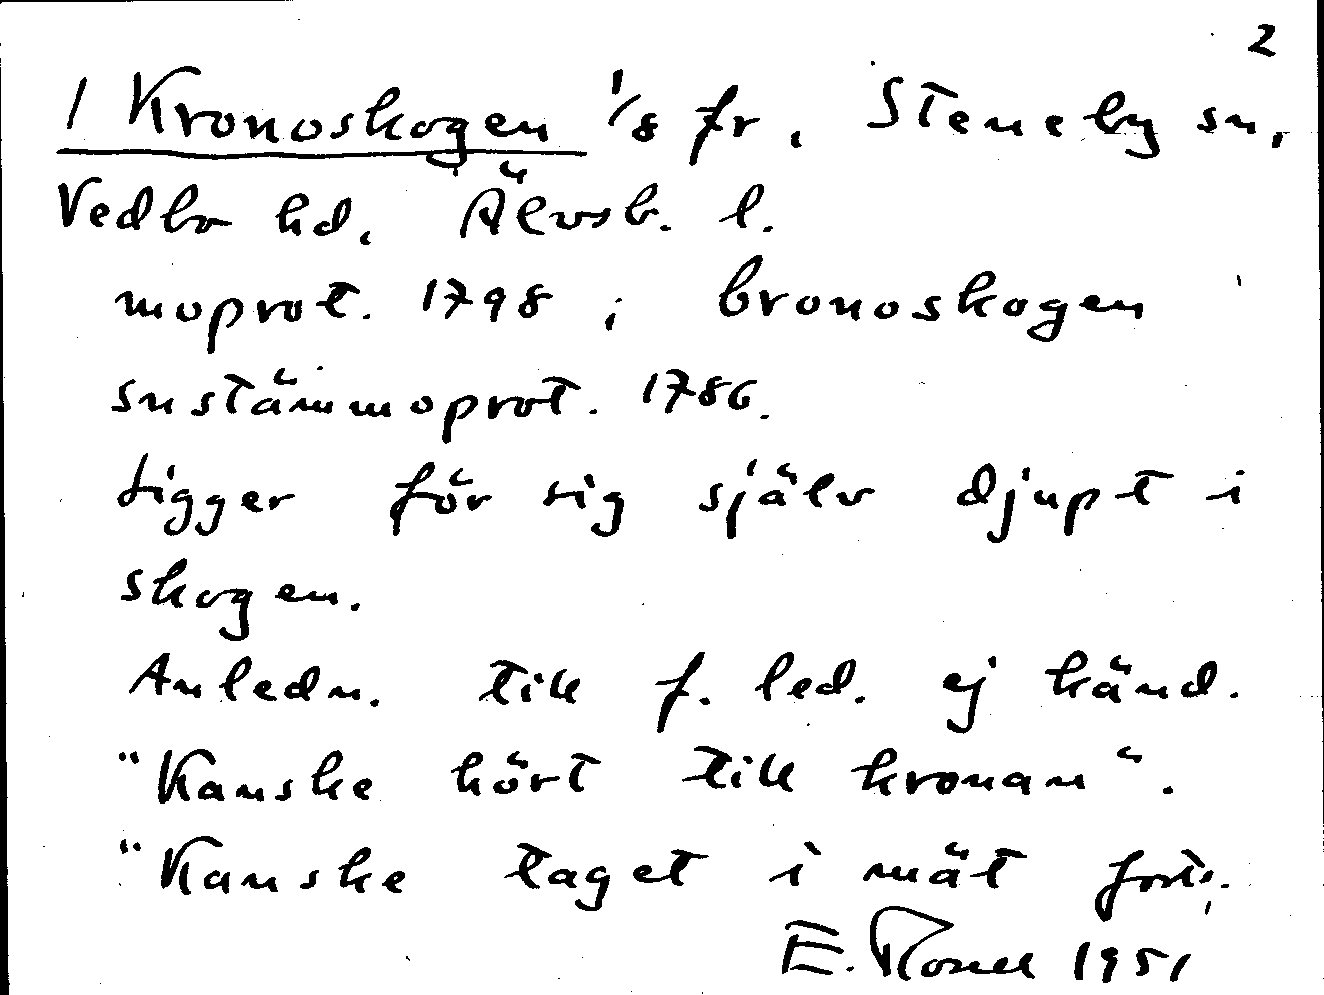 2
1 Kronoskogen 1/8 fr. Steneby sn,
Vedbo hd. Älvsb. l.
moprot. 1798 ; Cronoskogen
snstämmoprot. 1786.
Ligger för sig själv djupt i
skogen.
Anledn. till f. led. ej känd.
"Kanske hört till kronan".
"Kanske taget i mät forts.
E. 1951